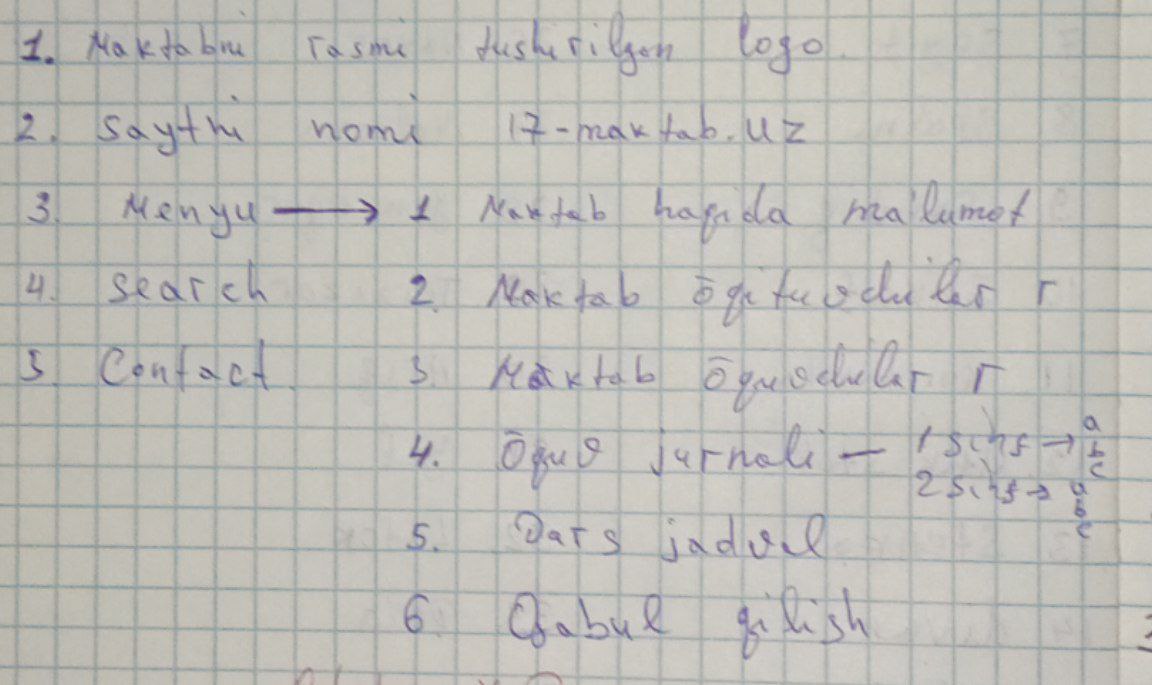 1. Maktabni rasmi tushirilgan logo.
2. Saytni nomi 17-maktab.uz
3. Menyu → 1 Maktab haqida ma'lumot
4. Search 2. Maktab ōqituvchilar r
5. Contact 3. Maktab ōquvchilar r
4. Ōquv jurnali — 1 sinf → a b c
2 sinf → a b c
5. Dars jadval
6 Qabul qilish